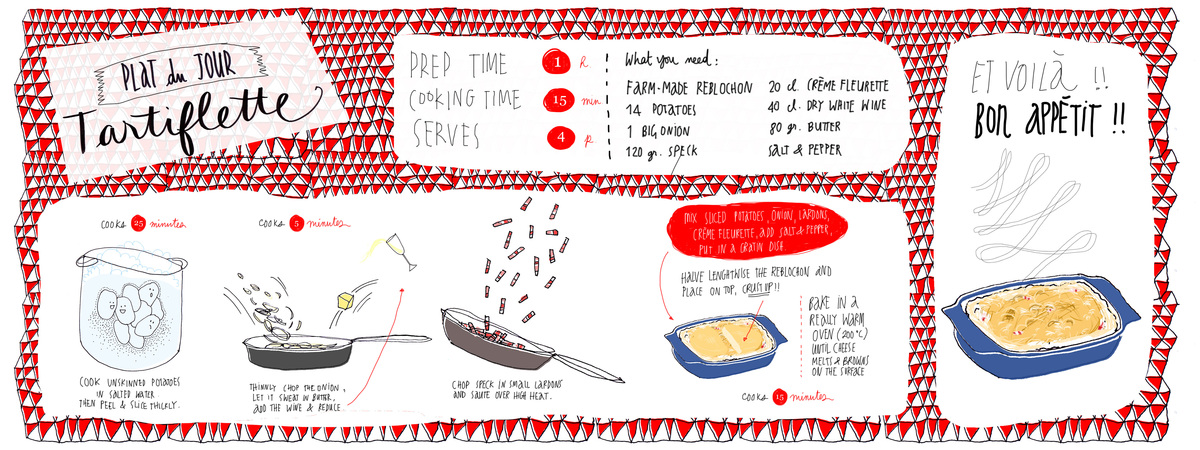 PLAT du JOUR
Tartiflette
PREP TIME 1 h
COOKING TIME 15 min
SERVES 4 p.
What you need:
FARM-MADE REBLOCHON
14 POTATOES
1 BIG ONION
120 gr. SPECK
20 cl. CRÈME FLEURETTE
40 cl. DRY WHITE WINE
80 gr. BUTTER
SALT & PEPPER
COOKS 25 minutes
COOK UNSKINNED POTATOES
IN SALTED WATER
THEN PEEL & SLICE THICKLY.
COOKS 5 minutes
THINNLY CHOP THE ONION,
LET IT SWEAT IN BUTTER,
ADD THE WINE & REDUCE
CHOP SPECK IN SMALL LARDONS
AND SAUTE OVER HIGH HEAT.
MIX SLICED POTATOES, ONION, LARDONS,
CRÈME FLEURETTE, ADD SALT & PEPPER,
PUT IN A GRATIN DISH
HALVE LENGHTWISE THE REBLOCHON AND
PLACE ON TOP, CRUST UP!!
BAKE IN A
REALLY WARM
OVEN (200°C)
UNTIL CHEESE
MELTS & BROWNS
ON THE SURFACE
COOKS 15 minutes
ET VOILÀ !!
BON APPÉTIT !!